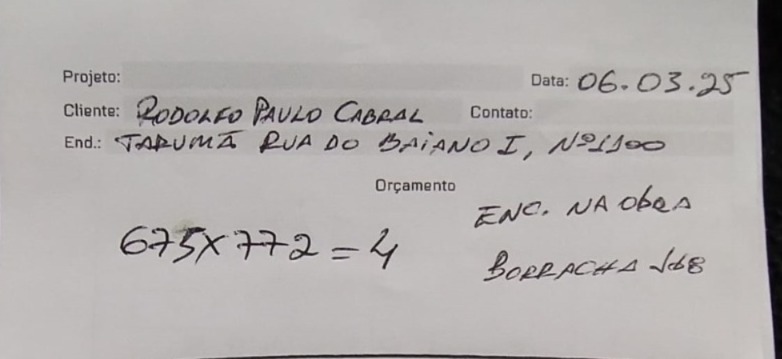 Projeto:
Data: 06.03.25
Cliente: RODOLFO PAULO CABRAL Contato:
End.: TARUMÃ RUA DO BAIANO I, Nº1100
Orçamento
ENC. NA OBRA
675X772=4
BORRACHA